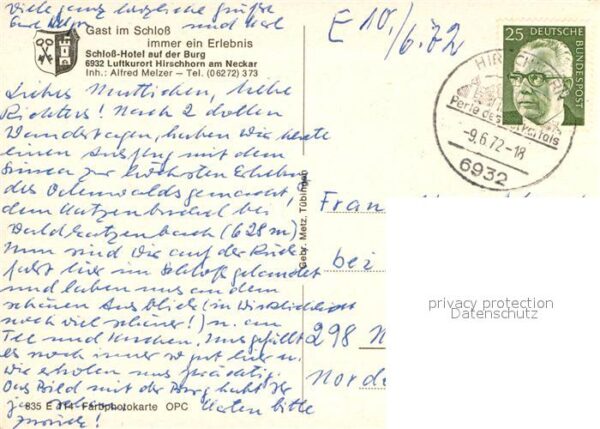 Viele ganz herzliche Grüße
und
E 10./6.72
Gast im Schloß
immer ein Erlebnis
Schloß-Hotel auf der Burg
6932 Luftkurort Hirschhorn am Neckar
Inh.: Alfred Melzer – Tel. (06272) 373
Liebes Muttichen, liebe
Richters! Nach 2 dollen
Wandertagen, haben wir heute
einen Ausflug mit dem
zur höchsten Erhebung
des Odenwalds gemacht,
dem Katzenbuckel bei
Waldkatzenbach (628 m)
Nun sind wir auf der Rück-
fahrt hier im Schloß gelandet
und haben uns an dem
schönen Ausblick (in Wirklichkeit
noch viel schöner!) u. am
Tee und Kuchen. Uns gefällt
es noch immer so gut hier u.
wir erholen uns prächtig.
Das Bild mit der Burg habt Ihr
ja schon. Karten bitte
zurück!
835 E 414 Farbphotokarte OPC
Gebr. Metz, Tübingen
25 DEUTSCHE
BUNDESPOST
Perle des Neckartals
-9.6.72-18
6932
bei
298 N
Norde
privacy protection
Datenschutz